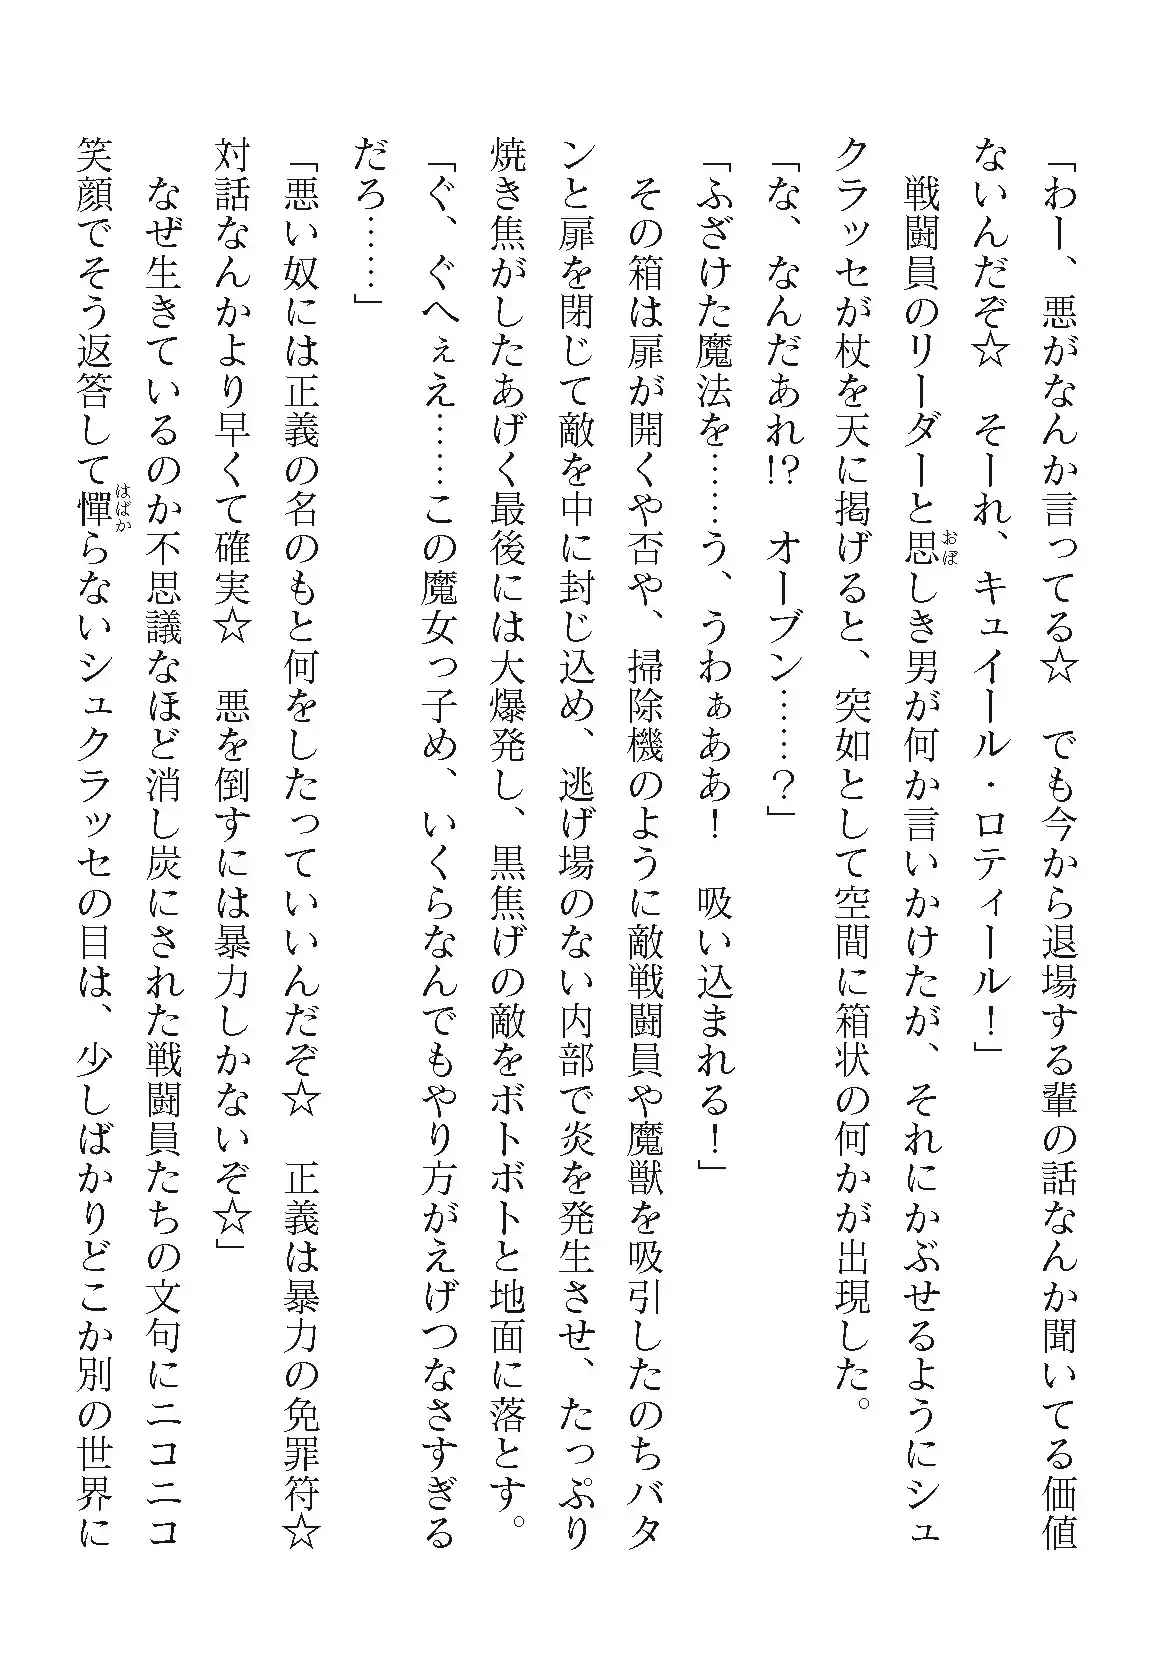 「わー、悪がなんか言ってる☆　でも今から退場する輩の話なんか聞いてる価値
ないんだぞ☆　そーれ、キュイール・ロティール！」
　戦闘員のリーダーと思しき男が何か言いかけたが、それにかぶせるようにシュ
クラッセが杖を天に掲げると、突如として空間に箱状の何かが出現した。
「な、なんだあれ!?　オーブン……？」
「ふざけた魔法を……う、うわぁああ！　吸い込まれる！」
　その箱は扉が開くや否や、掃除機のように敵戦闘員や魔獣を吸引したのちバタ
ンと扉を閉じて敵を中に封じ込め、逃げ場のない内部で炎を発生させ、たっぷり
焼き焦がしたあげく最後には大爆発し、黒焦げの敵をボトボトと地面に落とす。
「ぐ、ぐへぇえ……この魔女っ子め、いくらなんでもやり方がえげつなさすぎる
だろ……」
「悪い奴には正義の名のもと何をしたっていいんだぞ☆　正義は暴力の免罪符☆
対話なんかより早くて確実☆　悪を倒すには暴力しかないぞ☆」
　なぜ生きているのか不思議なほど消し炭にされた戦闘員たちの文句にニコニコ
笑顔でそう返答して憚らないシュクラッセの目は、少しばかりどこか別の世界に
おぼ
はばか